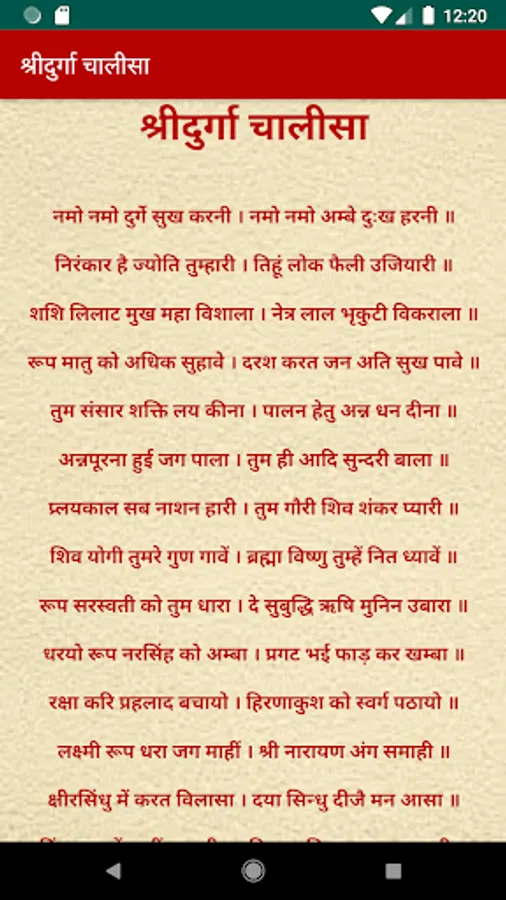 12:20
श्रीदुर्गा चालीसा
श्रीदुर्गा चालीसा
नमो नमो दुर्गे सुख करनी । नमो नमो अम्बे दुःख हरनी ॥
निरंकार है ज्योति तुम्हारी । तिहूं लोक फैली उजियारी ॥
शशि लिलाट मुख महा विशाला । नेत्र लाल भृकुटी विकराला ॥
रूप मातु को अधिक सुहावे । दरश करत जन अति सुख पावे ॥
तुम संसार शक्ति लय कीना । पालन हेतु अन्न धन दीना ॥
अन्नपूरना हुई जग पाला । तुम ही आदि सुन्दरी बाला ॥
प्रलयकाल सब नाशन हारी । तुम गौरी शिव शंकर प्यारी ॥
शिव योगी तुमरे गुण गावें । ब्रह्मा विष्णु तुम्हें नित ध्यावें ॥
रूप सरस्वती को तुम धारा । दे सुबुद्धि ऋषि मुनिन उबारा ॥
धरयो रूप नरसिंह को अम्बा । प्रगट भई फाड़ कर खम्बा ॥
रक्षा करि प्रहलाद बचायो । हिरणाकुश को स्वर्ग पठायो ॥
लक्ष्मी रूप धरा जग माहीं । श्री नारायण अंग समाही ॥
क्षीरसिंधु में करत विलासा । दया सिन्धु दीजै मन आसा ॥